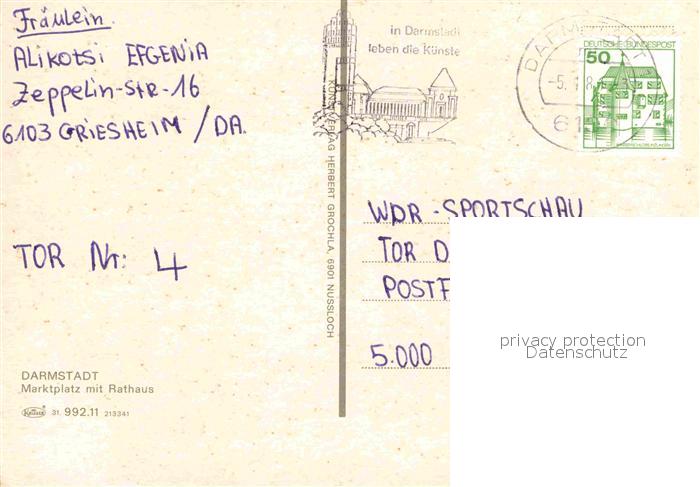 Fräulein
ALIKOTSI EFGENIA
Zeppelin-Str-16
6103 GRIESHEIM /DA.
TOR Nr: 4
DARMSTADT
Marktplatz mit Rathaus
Krüger 31. 992.11 213341
KUNSTVERLAG HERBERT GROCHLA, 6901 NUSSLOCH
in Darmstadt
leben die Künste
DARMSTADT
DEUTSCHE BUNDESPOST
50
WASSERSCHLOSS INZLINGEN
WDR-SPORTSCHAU
TOR D
POSTF
5.000
privacy protection
Datenschutz